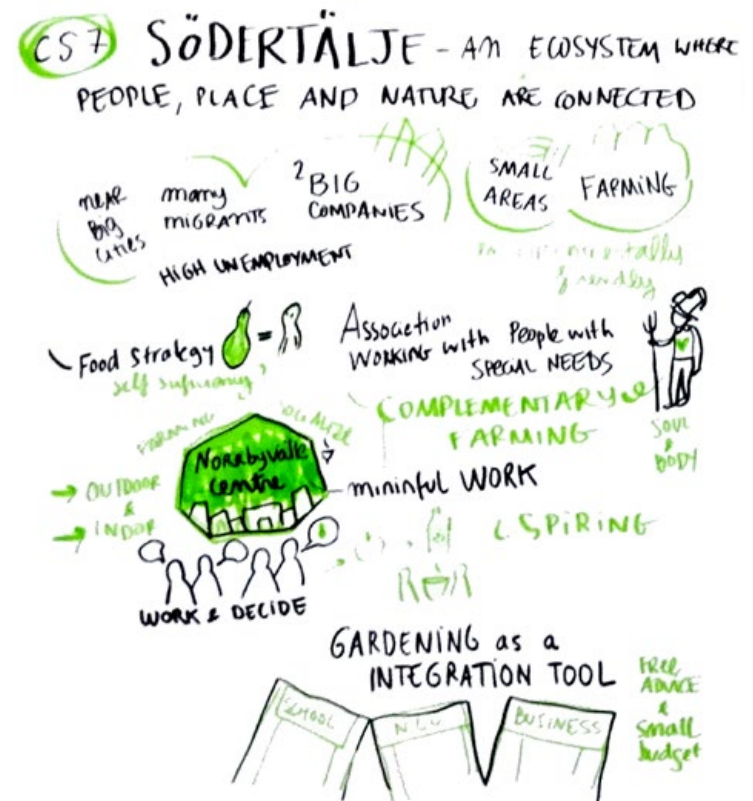 CS7 SÖDERTÄLJE - AN ECOSYSTEM WHERE
PEOPLE, PLACE AND NATURE ARE CONNECTED
near Big cities
many MIGRANTS
2 BIG COMPANIES
SMALL AREAS
FARMING
HIGH UNEMPLOYMENT
friendly
Food Strategy =
self
Association
WORKING with People with
SPECIAL NEEDS
COMPLEMENTARY
FARMING
SOUL
&
BODY
FARMING
→ OUTDOOR
&
→ INDOR
centre
mininful WORK
WORK & DECIDE
GARDENING as a
INTEGRATION TOOL
FREE
ADVICE
&
small
budget
SCHOOL
BUSINESS